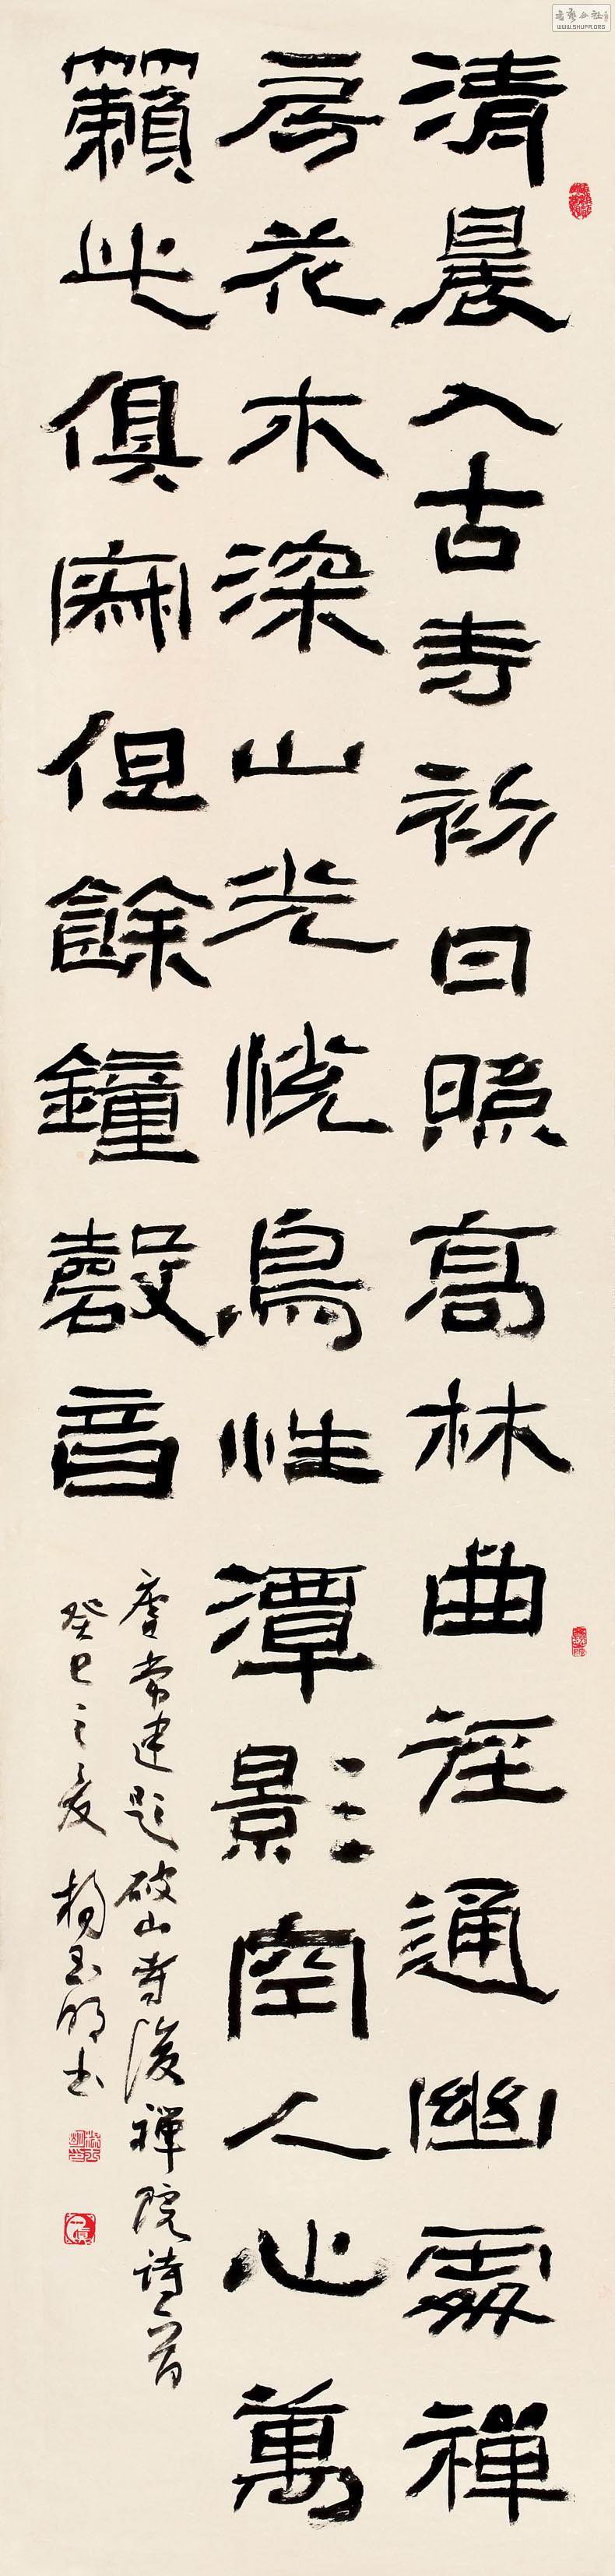 清晨入古寺初日照高林曲径通幽處禪
房花木深山光悦鳥性潭影空人心萬
籟此俱寂但餘鐘磬音
唐常建题破山寺後禪院诗一首
癸巳之夏 杨玉明书
WWW.SHUFA.ORG